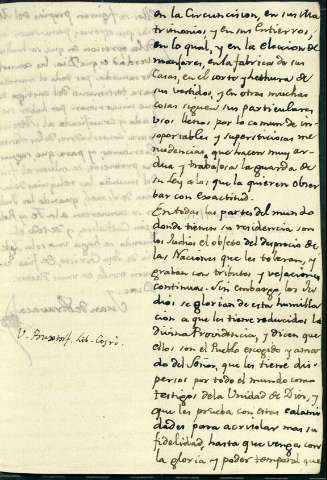 en la Circuncision, en sus Ma
trimonios, y en sus Entierros;
en lo qual, y en la eleccion de
manjares, en la fabrica de sus
Casas, en el corte y hechura de
sus vestidos, y en otras muchas
cosas siguen sus particulares
usos llenos por lo comun de in-
soportables y supersticiosas me
nudencias, que hacen muy ar-
dua y trabajosa la guarda de
su Ley a los que la quieren obser
bar con exactitud.
En todas las partes del mundo
donde tienen su residencia son
los Judios el objeto del desprecio de
las Naciones que les toleran, y
gravan con tributos y vejaciones
continuas. Sin embargo los Ju
dios se glorian de esta humilla
cion a que les tiene reducidos la
divina Providencia, y dicen que
ellos son el Pueblo escogido y ama
do del Señor, que les tiene dis-
persos por todo el mundo como
testigos de la Unidad de Dios, y
que les prueba con estas calami
dades para acrisolar mas su
fidelidad, hasta que venga con
la gloria y poder temporal que
V. Buxtorf. Lib. Cozri.